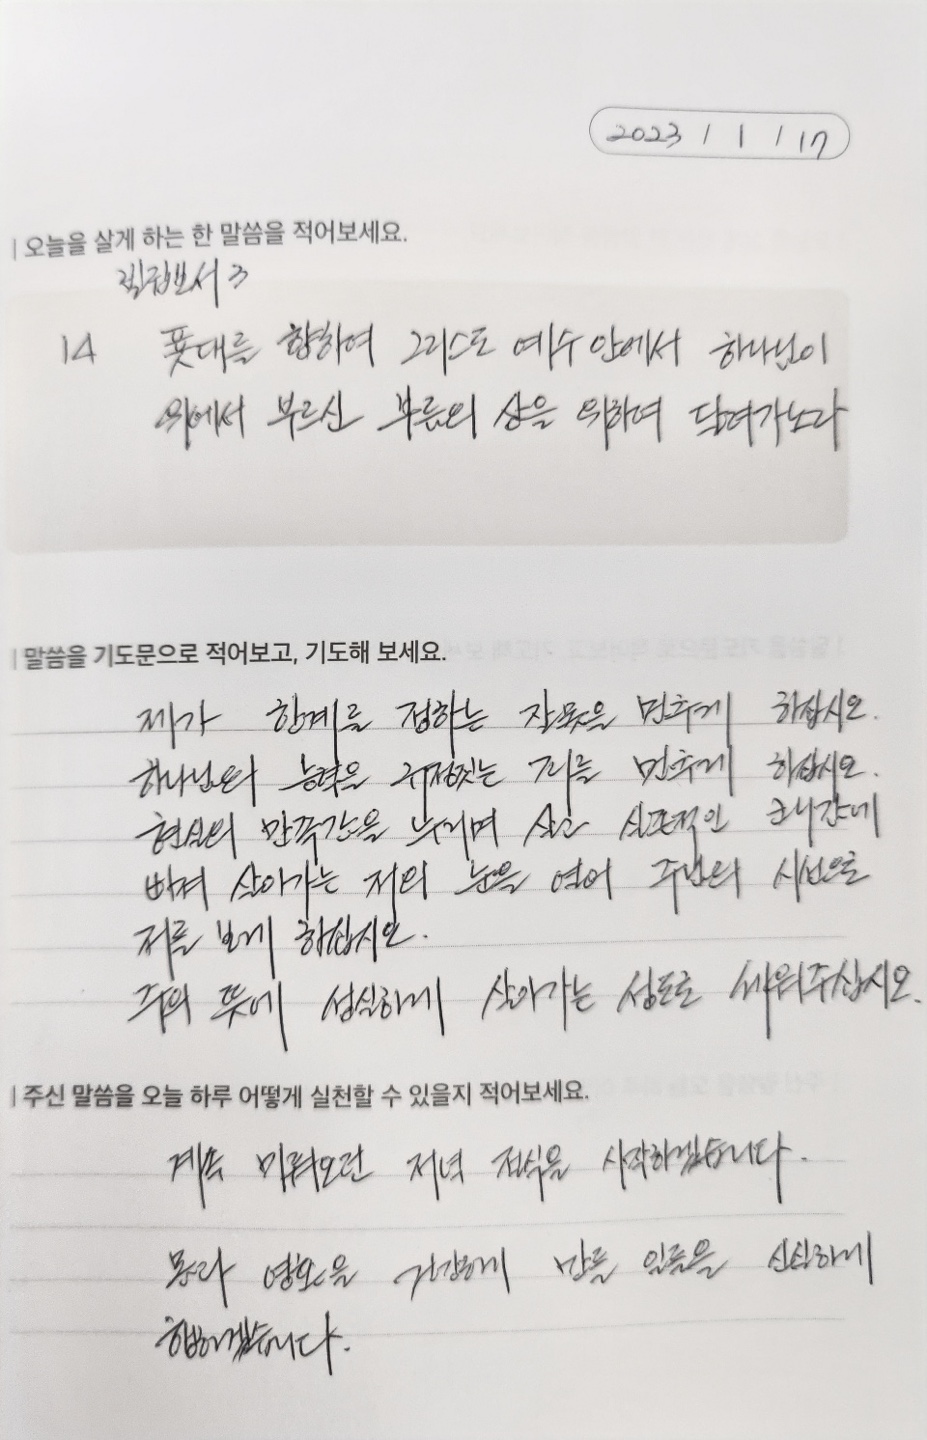 2023 / 1 / 17
| 오늘을 살게 하는 한 말씀을 적어보세요.
빌립보서 3
14 푯대를 향하여 그리스도 예수 안에서 하나님이
위에서 부르신 부름의 상을 위하여 달려가노라
| 말씀을 기도문으로 적어보고, 기도해 보세요.
제가 한계를 정하는 잘못을 멈추게 하십시오.
하나님의 능력을 규정짓는 죄를 멈추게 하십시오.
현실의 만족감을 누리며 살고 실료적인
빠져 살아가는 저의 눈을 열어 주님의 시선으로
저를 보게 하십시오.
주의 뜻에 성실하게 살아가는 성도로 세워주십시오.
| 주신 말씀을 오늘 하루 어떻게 실천할 수 있을지 적어보세요.
계속 미뤄오던 저녁 절식을 시작하겠습니다.
몸과 영혼을 건강하게 만들 일들을 신실하게
행하겠습니다.